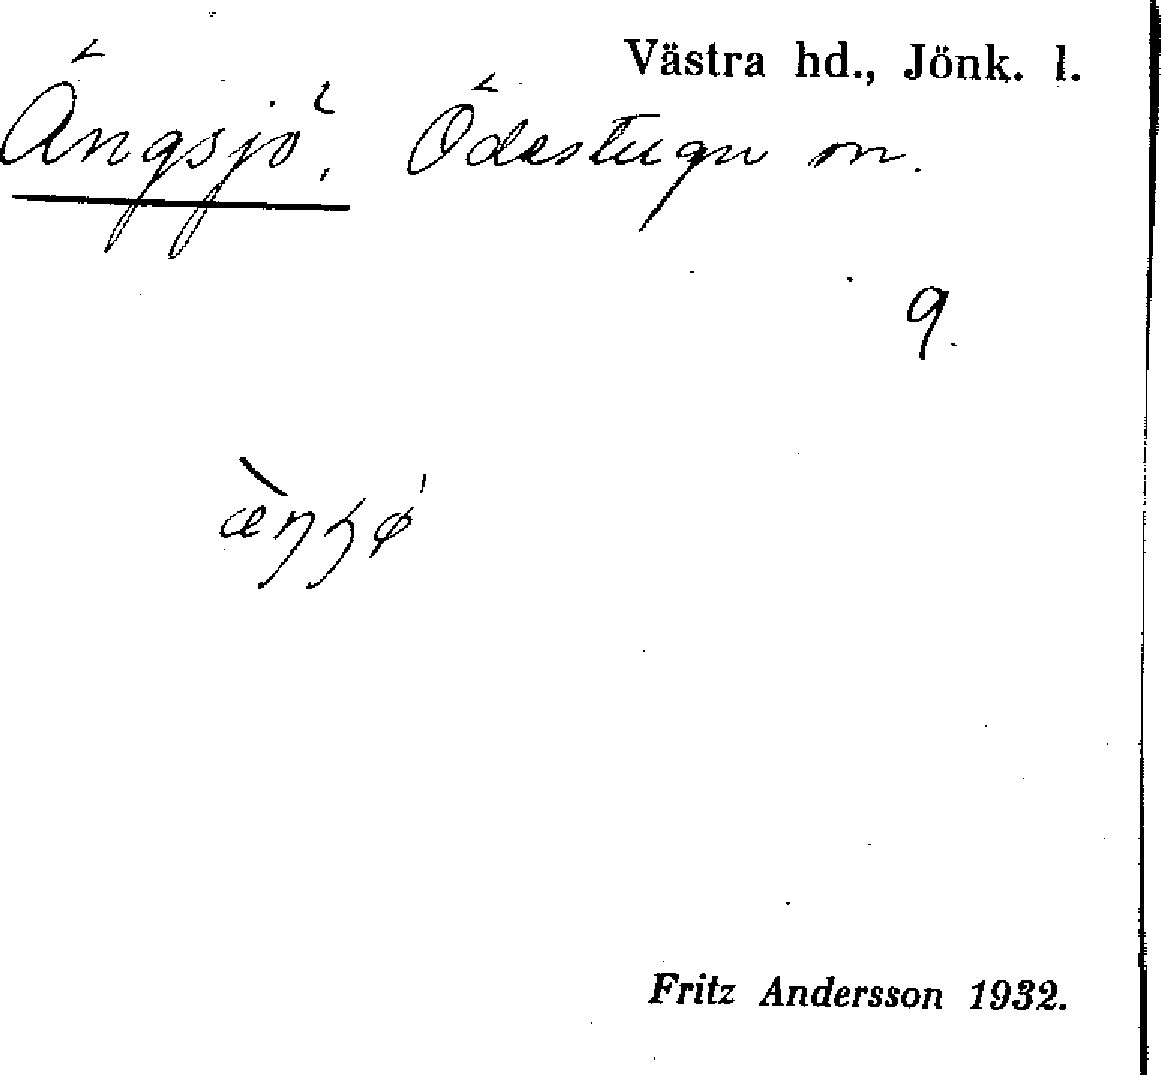 Västra hd., Jönk. l.
Ängsjö, Ödestugu sn.
9.
Fritz Andersson 1932.